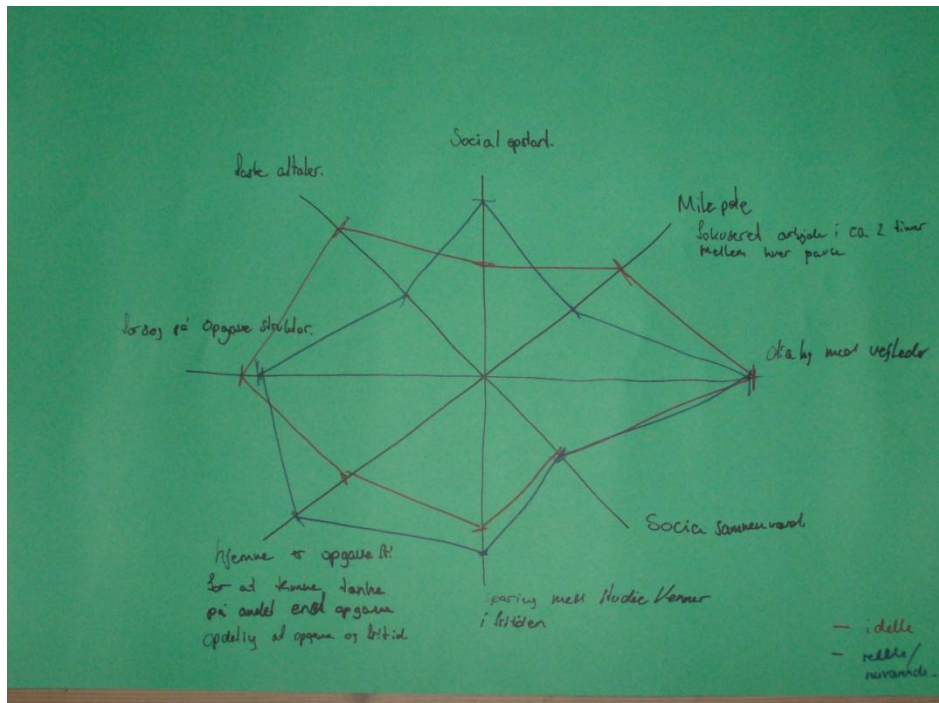 Social opstart.
Faste aftaler.
Milepæle
fokuseret arbejde i ca 2 timer
mellem hver pause
forsøg på opgave struktur.
okay med vejleder
Social sammenværd.
hjemme er opgave fri
for at kunne tænke
på andet end opgave
opdeling af opgave og fritid.
sparing med studie venner
i fritiden
— idelle
— reelle/
nuværende